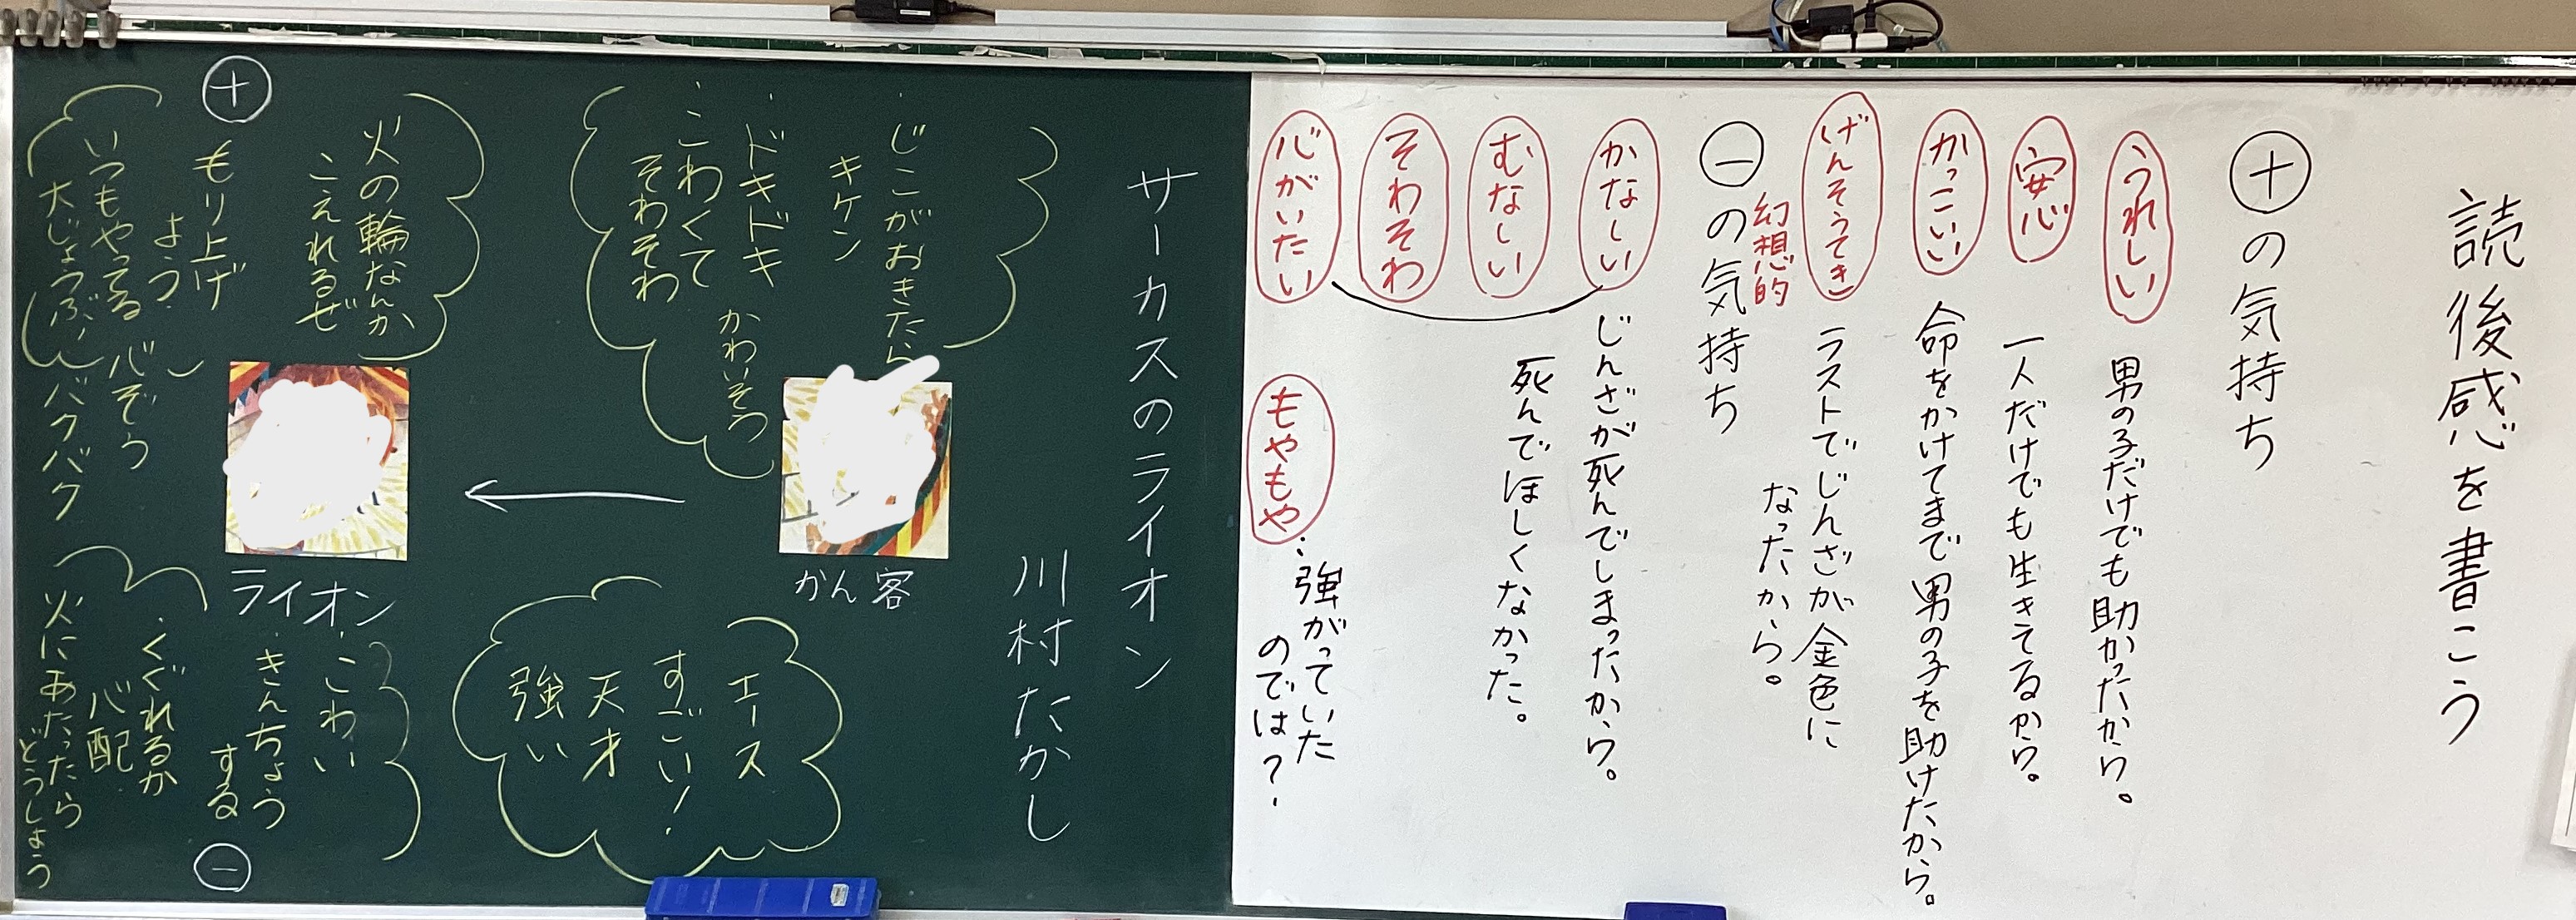 読後感を書こう
＋の気持ち
うれしい
男の子だけでも助かったから。
安心
一人だけでも生きてるから。
かっこいい
命をかけてまで男の子を助けたから。
げんそうてき
幻想的
ラストでじんざが金色に
なったから。
－の気持ち
かなしい
じんざが死んでしまったから。
むなしい
死んでほしくなかった。
そわそわ
心がいたい
もやもや
・強がっていた
のでは？
サーカスのライオン
川村たかし
・じこがおきたら
キケン
ドキドキ
かわいそう
・こわくて
そわそわ
かん客
エース
すごい！
天才
強い
火の輪なんか
こえれるぜ
＋
もり上げ
よう
いつもやってる
大じょうぶ！
心ぞう
バクバク
ライオン
・こわい
・きんちょう
する
・くぐれるか
心配
火にあたったら
どうしよう
－